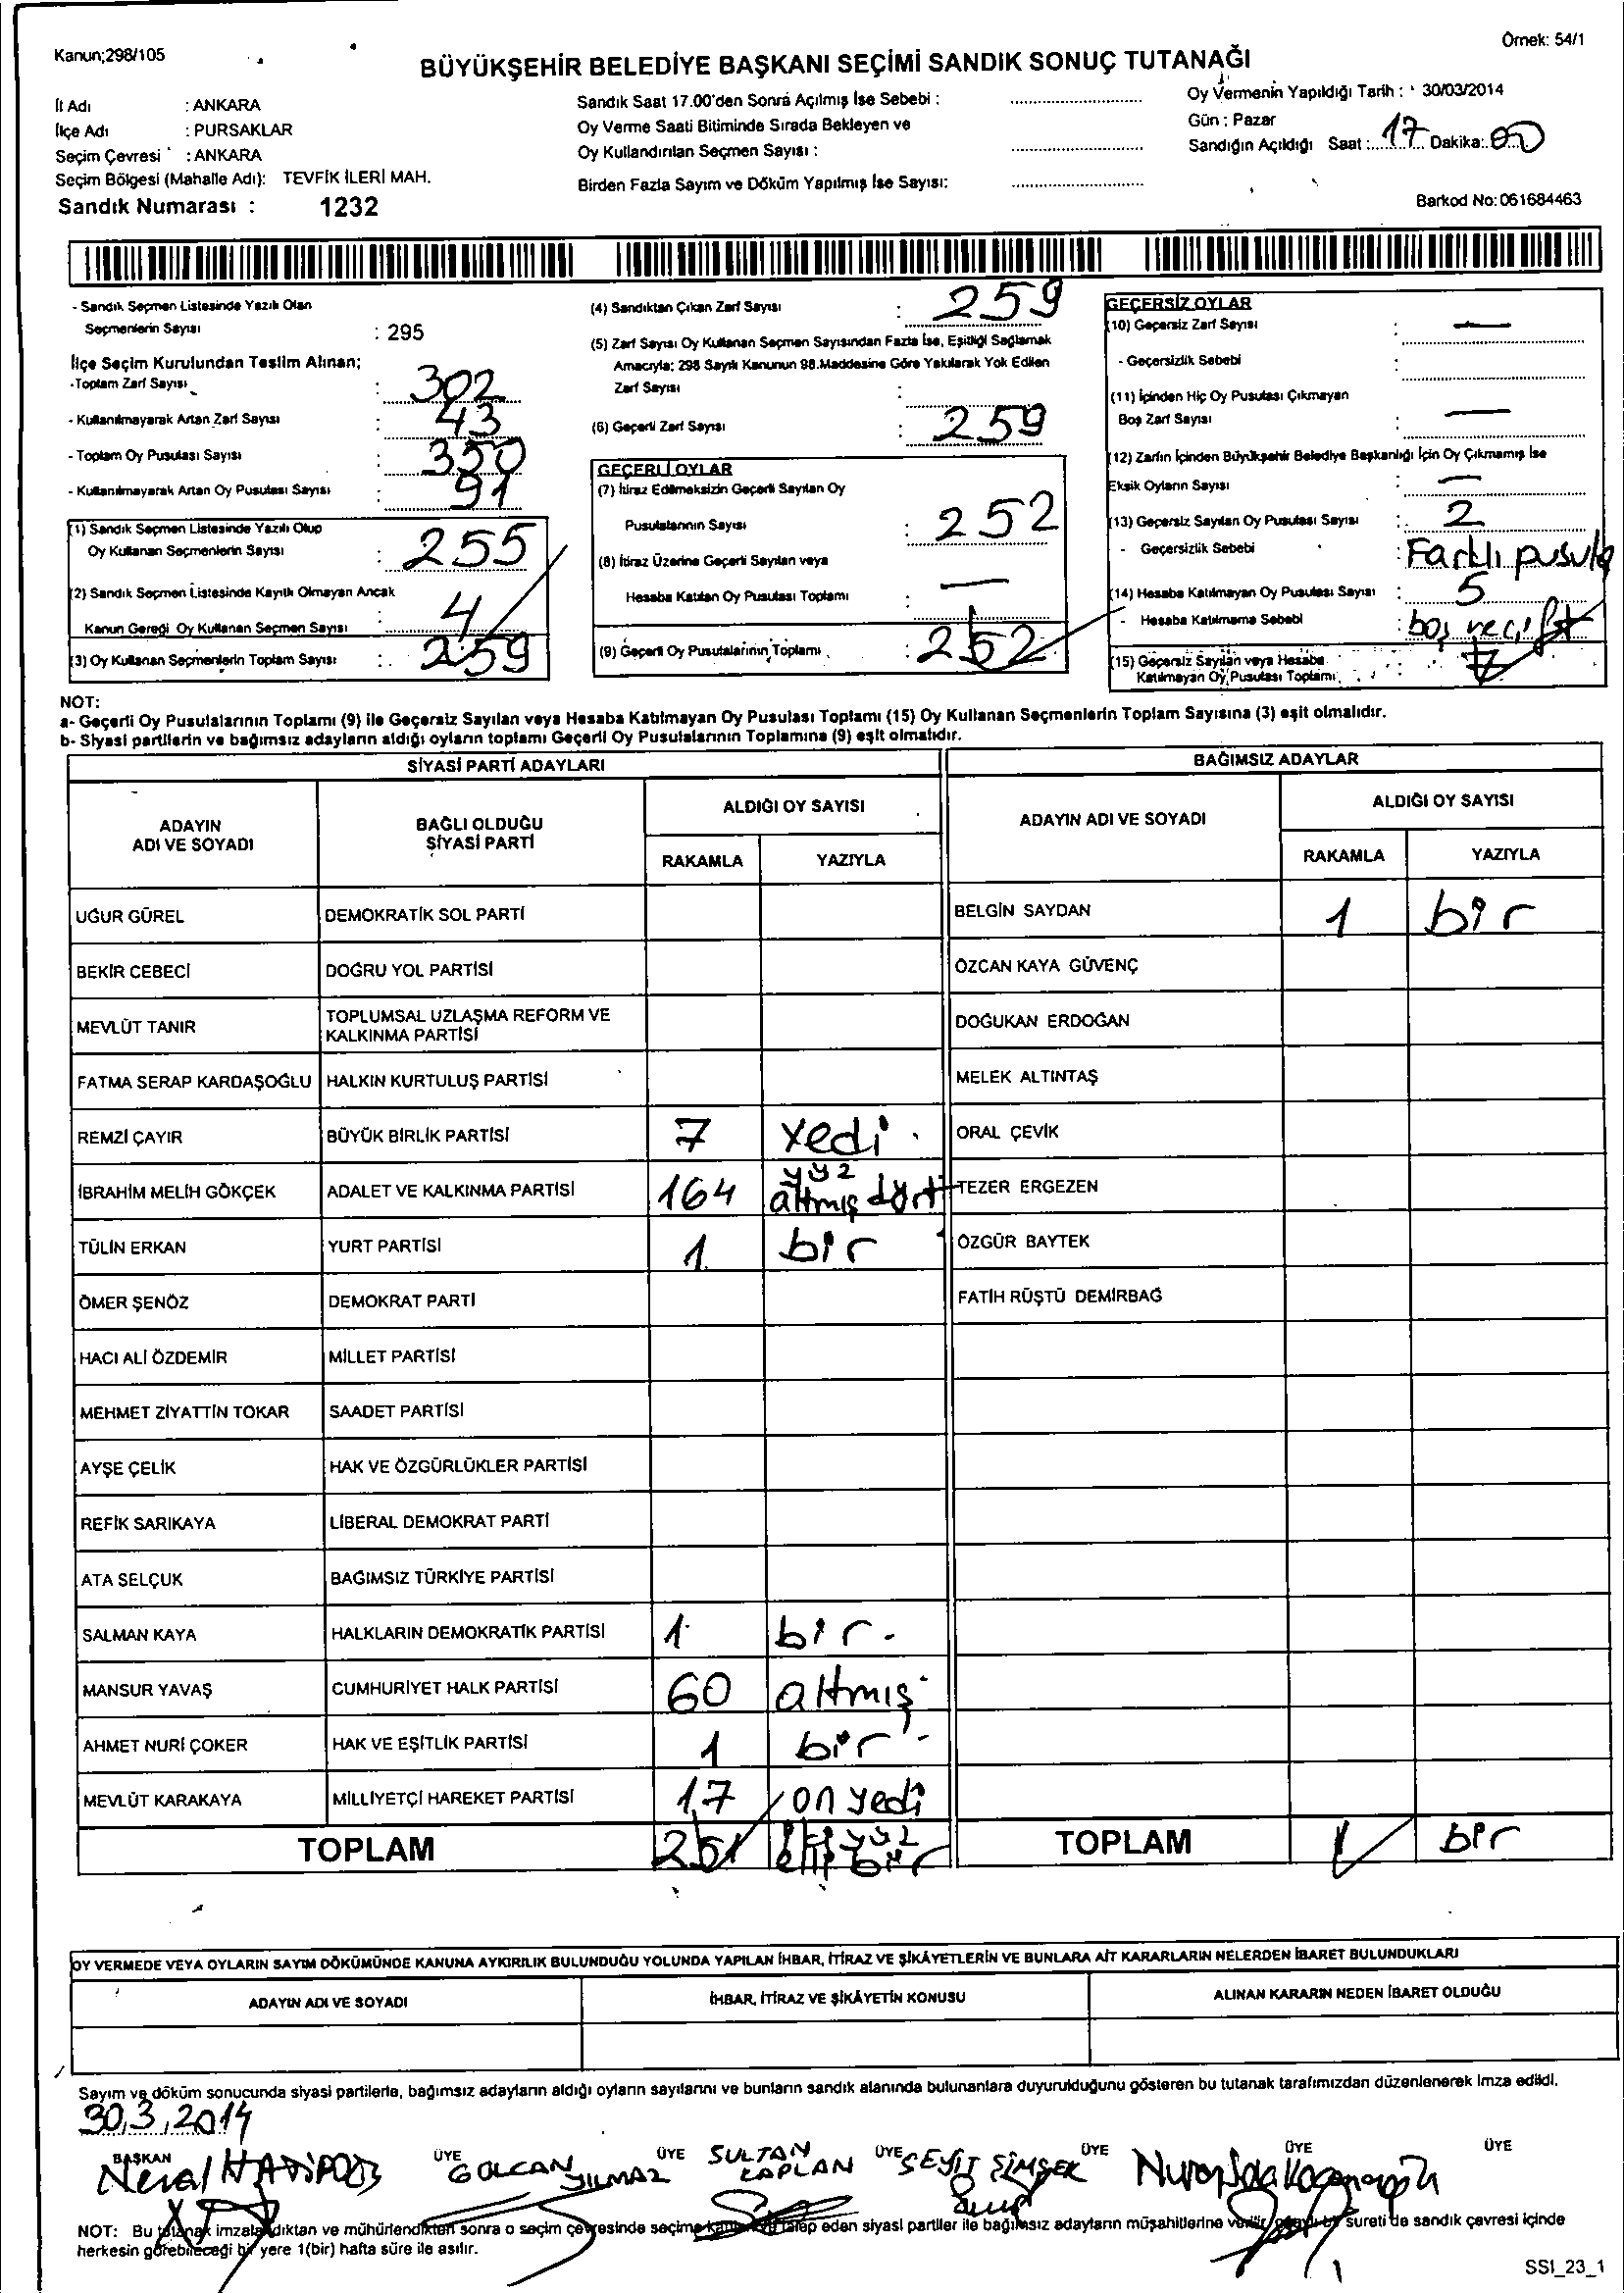 Kanun;298/105
Örnek: 54/1
BÜYÜKŞEHİR BELEDİYE BAŞKANI SEÇİMİ SANDIK SONUÇ TUTANAĞI
İl Adı : ANKARA
İlçe Adı : PURSAKLAR
Seçim Çevresi : ANKARA
Seçim Bölgesi (Mahalle Adı): TEVFİK İLERİ MAH.
Sandık Numarası : 1232
Sandık Saat 17.00'den Sonra Açılmış İse Sebebi :
Oy Verme Saati Bitiminde Sırada Bekleyen ve
Oy Kullandırılan Seçmen Sayısı :
Birden Fazla Sayım ve Döküm Yapılmış İse Sayısı:
Oy Vermenin Yapıldığı Tarih : 30/03/2014
Gün : Pazar
Sandığın Açıldığı Saat : 17 Dakika: 00
Barkod No: 061684463
- Sandık Seçmen Listesinde Yazılı Olan
Seçmenlerin Sayısı : 295
İlçe Seçim Kurulundan Teslim Alınan;
-Toplam Zarf Sayısı : 302
- Kullanılmayarak Artan Zarf Sayısı : 43
- Toplam Oy Pusulası Sayısı : 350
- Kullanılmayarak Artan Oy Pusulası Sayısı : 91
(1) Sandık Seçmen Listesinde Yazılı Olup
Oy Kullanan Seçmenlerin Sayısı : 255
(2) Sandık Seçmen Listesinde Kayıtlı Olmayan Ancak
Kanun Gereği Oy Kullanan Seçmen Sayısı : 4
(3) Oy Kullanan Seçmenlerin Toplam Sayısı : 259
(4) Sandıktan Çıkan Zarf Sayısı : 259
(5) Zarf Sayısı Oy Kullanan Seçmen Sayısından Fazla İse, Eşitliği Sağlamak
Amacıyla; 298 Sayılı Kanunun 98.Maddesine Göre Yakılarak Yok Edilen
Zarf Sayısı :
(6) Geçerli Zarf Sayısı : 259
GEÇERLİ OYLAR
(7) İtiraz Edilmeksizin Geçerli Sayılan Oy
Pusulalarının Sayısı : 252
(8) İtiraz Üzerine Geçerli Sayılan veya
Hesaba Katılan Oy Pusulası Toplamı : —
(9) Geçerli Oy Pusulalarının Toplamı : 252
GEÇERSİZ OYLAR
(10) Geçersiz Zarf Sayısı : —
- Geçersizlik Sebebi :
(11) İçinden Hiç Oy Pusulası Çıkmayan
Boş Zarf Sayısı : —
(12) Zarfın İçinden Büyükşehir Belediye Başkanlığı İçin Oy Çıkmamış İse
Eksik Oyların Sayısı : —
(13) Geçersiz Sayılan Oy Pusulası Sayısı : 2
- Geçersizlik Sebebi : Farklı pusula
(14) Hesaba Katılmayan Oy Pusulası Sayısı : 5
- Hesaba Katılmama Sebebi : boş ve çift
(15) Geçersiz Sayılan veya Hesaba
Katılmayan Oy Pusulası Toplamı : 7
NOT:
a- Geçerli Oy Pusulalarının Toplamı (9) ile Geçersiz Sayılan veya Hesaba Katılmayan Oy Pusulası Toplamı (15) Oy Kullanan Seçmenlerin Toplam Sayısına (3) eşit olmalıdır.
b- Siyasi partilerin ve bağımsız adayların aldığı oyların toplamı Geçerli Oy Pusulalarının Toplamına (9) eşit olmalıdır.
SİYASİ PARTİ ADAYLARI
ADAYIN ADI VE SOYADI
BAĞLI OLDUĞU SİYASİ PARTİ
ALDIĞI OY SAYISI
RAKAMLA YAZIYLA
UĞUR GÜREL DEMOKRATİK SOL PARTİ
BEKİR CEBECİ DOĞRU YOL PARTİSİ
MEVLÜT TANIR TOPLUMSAL UZLAŞMA REFORM VE KALKINMA PARTİSİ
FATMA SERAP KARDAŞOĞLU HALKIN KURTULUŞ PARTİSİ
REMZİ ÇAYIR BÜYÜK BİRLİK PARTİSİ 7 yedi
İBRAHİM MELİH GÖKÇEK ADALET VE KALKINMA PARTİSİ 164 yüz altmış dört
TÜLİN ERKAN YURT PARTİSİ 1 bir
ÖMER ŞENÖZ DEMOKRAT PARTİ
HACI ALİ ÖZDEMİR MİLLET PARTİSİ
MEHMET ZİYATTİN TOKAR SAADET PARTİSİ
AYŞE ÇELİK HAK VE ÖZGÜRLÜKLER PARTİSİ
REFİK SARIKAYA LİBERAL DEMOKRAT PARTİ
ATA SELÇUK BAĞIMSIZ TÜRKİYE PARTİSİ
SALMAN KAYA HALKLARIN DEMOKRATİK PARTİSİ 1 bir
MANSUR YAVAŞ CUMHURİYET HALK PARTİSİ 60 altmış
AHMET NURİ ÇOKER HAK VE EŞİTLİK PARTİSİ 1 bir
MEVLÜT KARAKAYA MİLLİYETÇİ HAREKET PARTİSİ 17 on yedi
TOPLAM 251 iki yüz elli bir
BAĞIMSIZ ADAYLAR
ADAYIN ADI VE SOYADI
ALDIĞI OY SAYISI
RAKAMLA YAZIYLA
BELGİN SAYDAN 1 bir
ÖZCAN KAYA GÜVENÇ
DOĞUKAN ERDOĞAN
MELEK ALTINTAŞ
ORAL ÇEVİK
TEZER ERGEZEN
ÖZGÜR BAYTEK
FATİH RÜŞTÜ DEMİRBAĞ
TOPLAM 1 bir
OY VERMEDE VEYA OYLARIN SAYIM DÖKÜMÜNDE KANUNA AYKIRILIK BULUNDUĞU YOLUNDA YAPILAN İHBAR, İTİRAZ VE ŞİKÂYETLERİN VE BUNLARA AİT KARARLARIN NELERDEN İBARET BULUNDUKLARI
ADAYIN ADI VE SOYADI
İHBAR, İTİRAZ VE ŞİKÂYETİN KONUSU
ALINAN KARARIN NEDEN İBARET OLDUĞU
Sayım ve döküm sonucunda siyasi partilerle, bağımsız adayların aldığı oyların sayılarını ve bunların sandık alanında bulunanlara duyurulduğunu gösteren bu tutanak tarafımızdan düzenlenerek imza edildi.
30,3,2014
BAŞKAN ÜYE ÜYE ÜYE ÜYE ÜYE ÜYE
GOLCAN YILMAZ
SULTAN KAPLAN
SEYİT ŞİMŞEK
NOT: Bu tutanak imzalandıktan ve mühürlendikten sonra o seçim çevresinde seçime katılan ve talep eden siyasi partiler ile bağımsız adayların müşahitlerine verilir, sureti de sandık çevresi içinde
herkesin görebileceği bir yere 1(bir) hafta süre ile asılır.
SSI_23_1